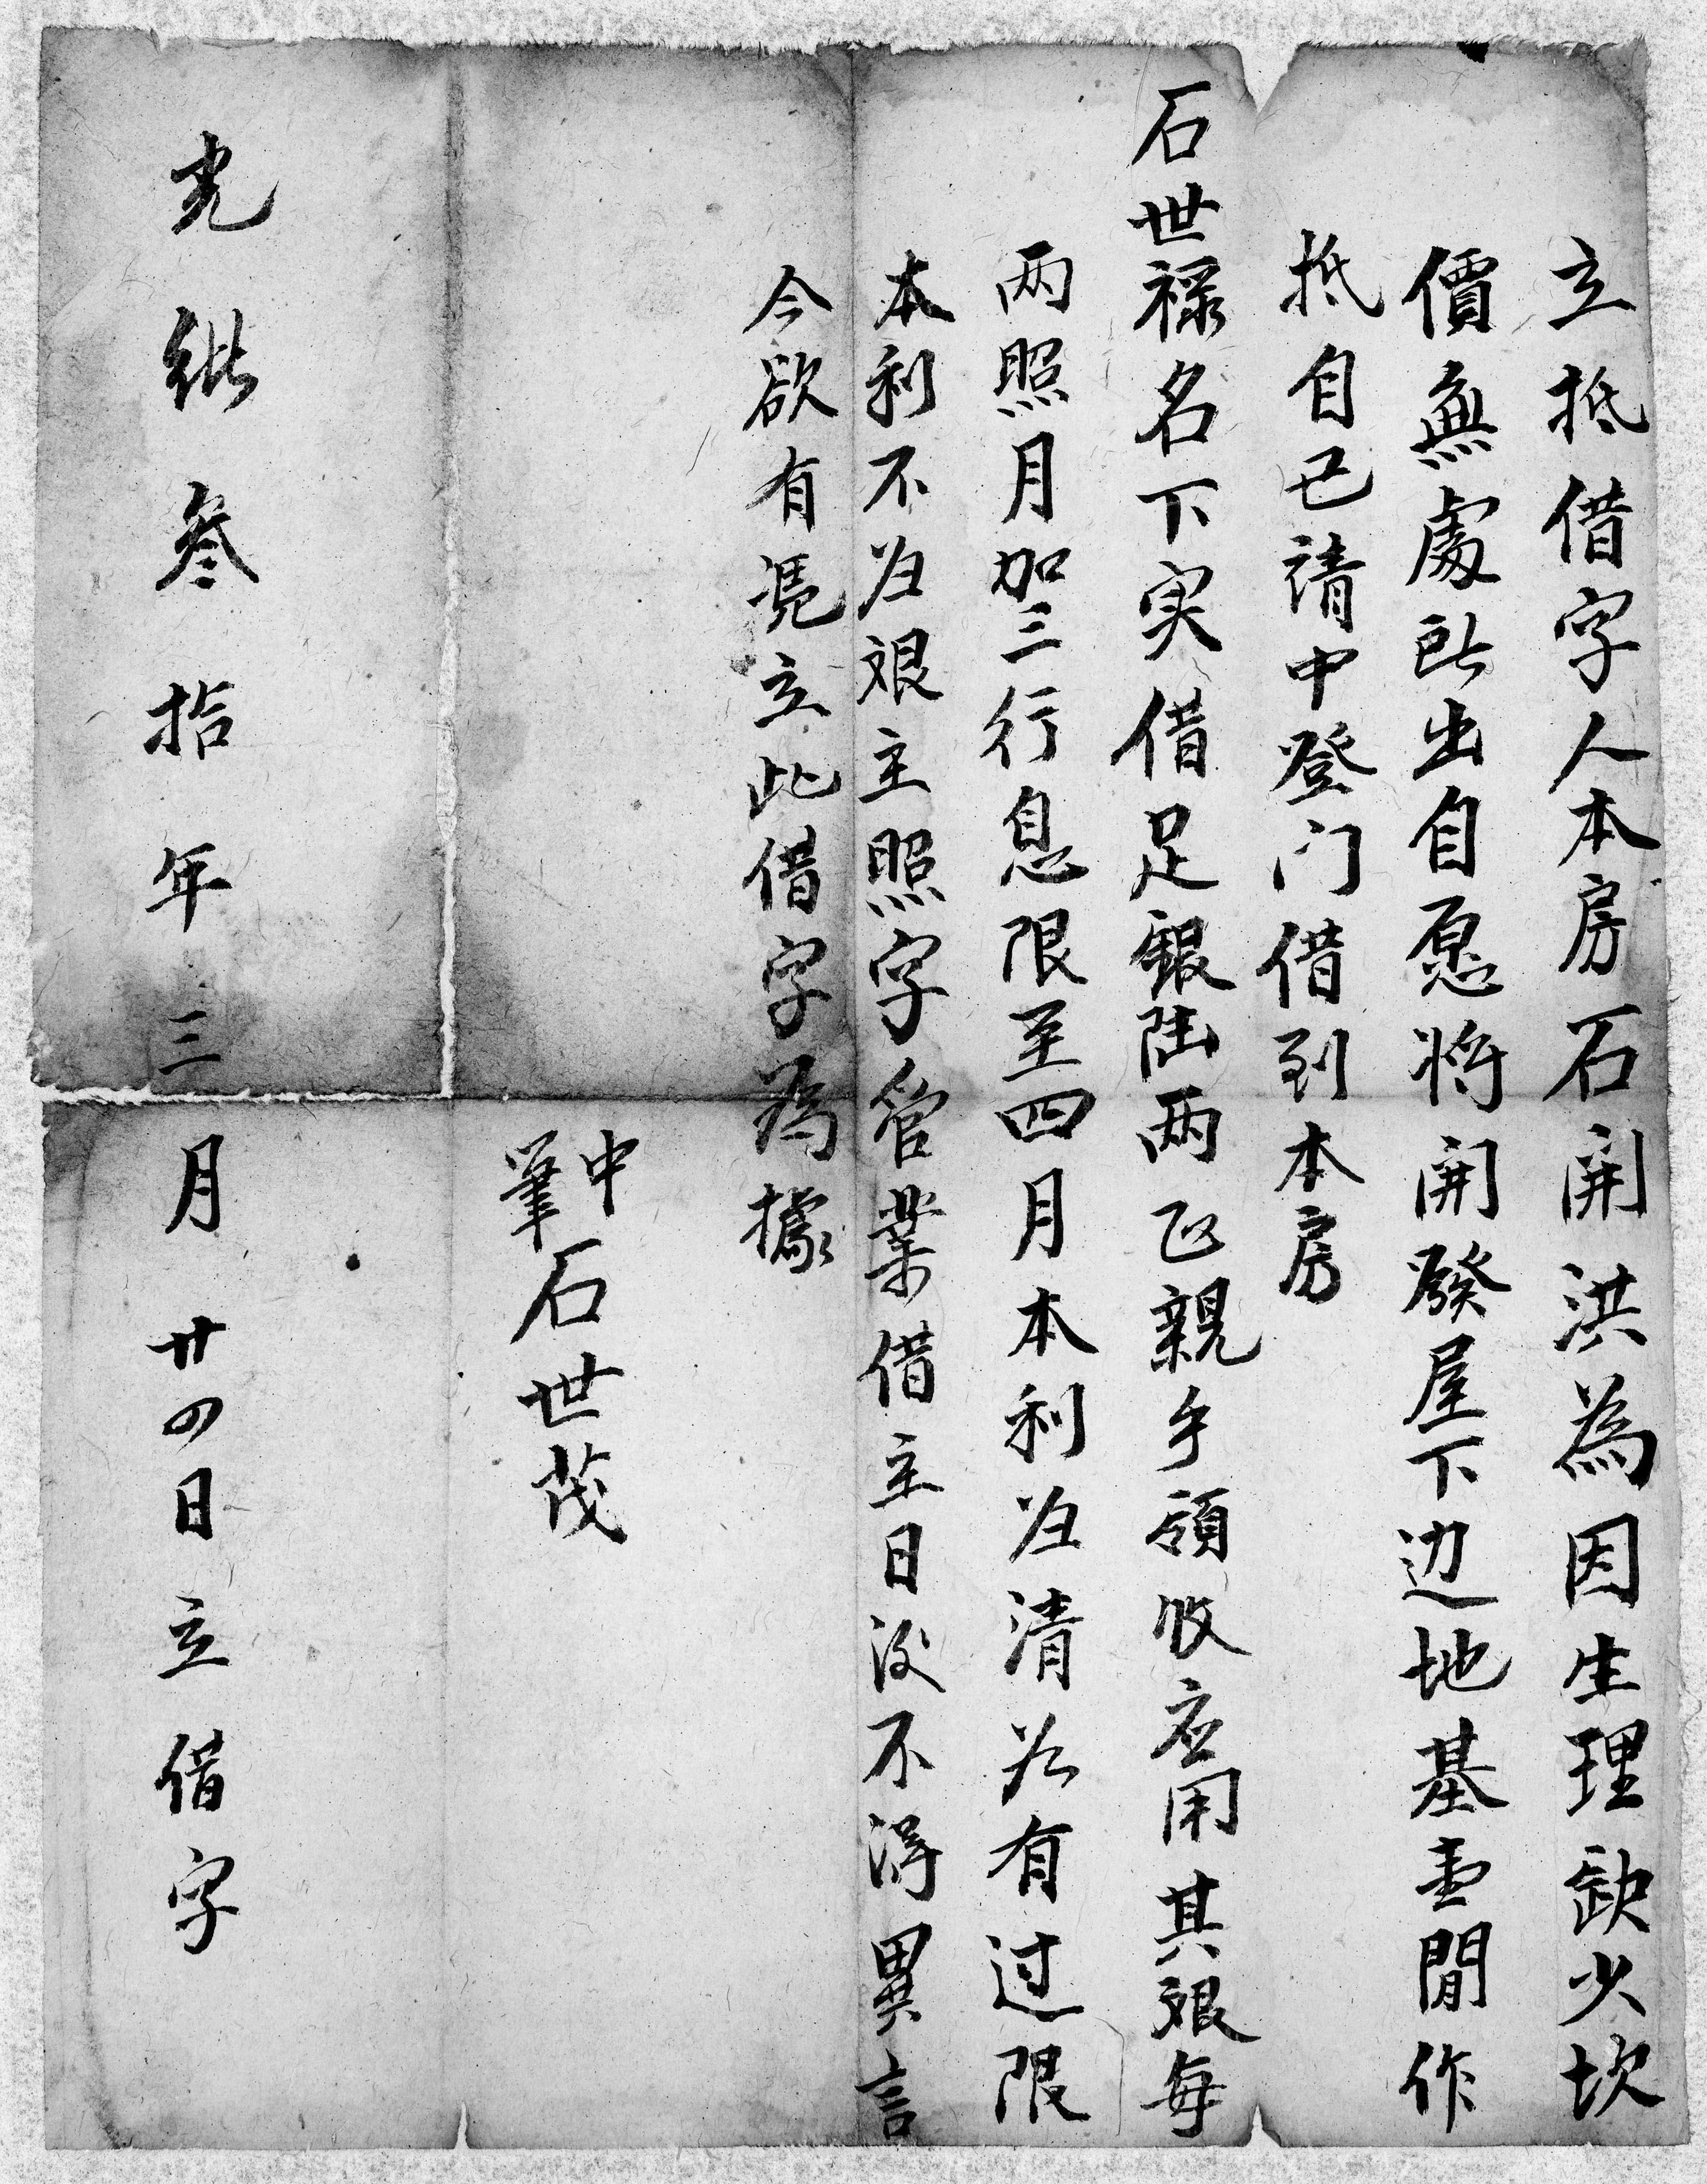 立抵借字人本房石開洪為因生理缺少坎
價無處所出自愿将開發屋下边地基壹間作
抵自己請中登门借到本房
石世祿名下实借足銀陆两正親手領收应用其艰每
两照月加三行息限至四月本利归清若有过限
本利不归艰主照字管業借主日後不得異言
今欲有凴立此借字為據
中
筆
石世茂
光緒叁拾年三月廿四日立借字